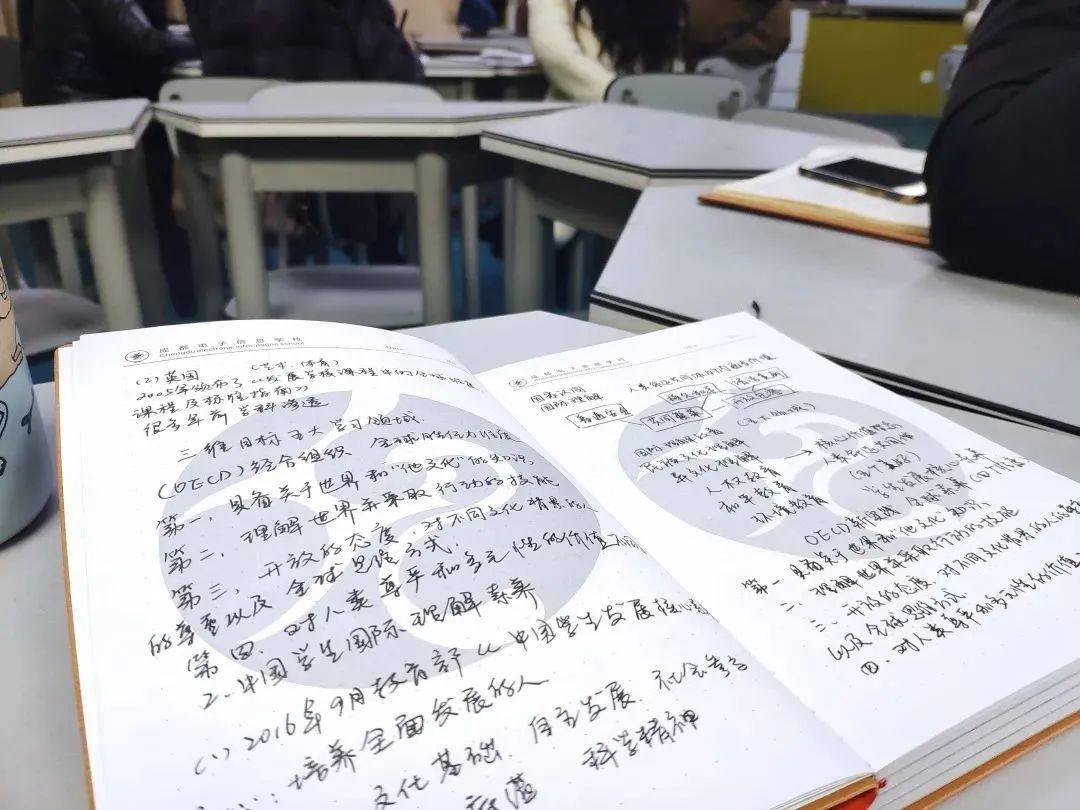 成都电子信息学校
Chengdu electronic information school
(2) 英国 (艺术、体育)
2005年颁布了《发展学校课程中的全球维度
课程及标准指南》
很多年前 学科渗透
三维目标 五大学习领域
(OECD) 经合组织 全球胜任力维度
第一、具备关于世界和"他文化"的知识,
第二、理解世界并采取行动的技能
第三、开放的态度、对不同文化情景的人
的尊重以及全球思维方式.
第四、对人类尊严和多元性的价值
2、中国学生国际理解素养
(1) 2016年9月教育部《中国学生发展核心
培养全面发展的人
文化基础、自主发展、社会参与
底蕴 科学精神
成都电子信息学校
国际认同
国际理解
国际理解教育
民族文化理解
异文化理解
人权教育
和平教育
环境教育
OECD
第一、具备关于世界和他文化知识,
二、理解世界并采取行动的技能
三、开放的态度、对不同文化情景的人的尊重
以及全球思维方式
四、对人类尊严和多元性的价值